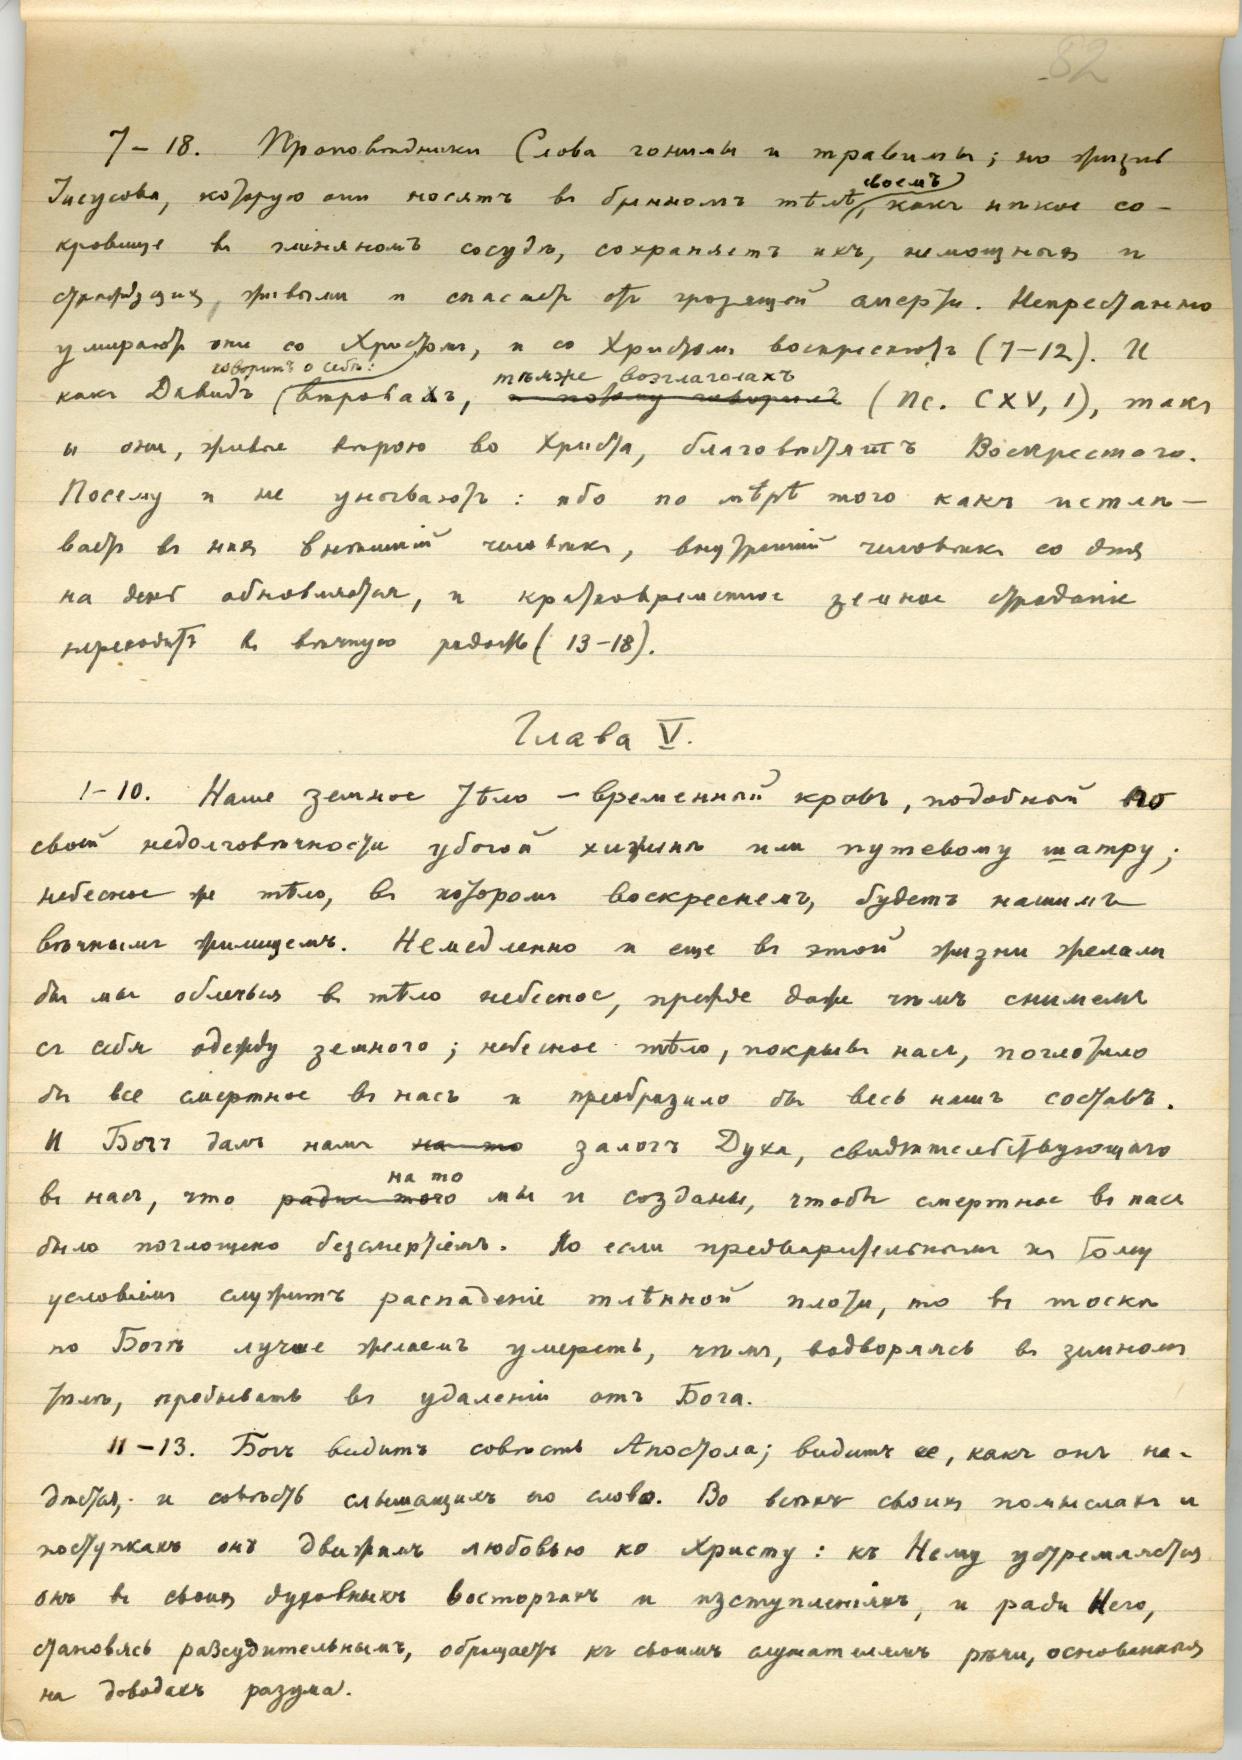 82
7–18. Проповѣдники Слова гонимы и травимы; но жизнь
Іисусова, которую они носятъ въ бренномъ тѣлѣ своемъ, какъ нѣкое со-
кровище въ глиняномъ сосудѣ, сохраняетъ ихъ, немощныхъ и
страждущихъ, живыми и спасаетъ отъ грозящей смерти. Непрестанно
умираютъ они со Христомъ, и со Христомъ воскресаютъ (7–12). И
какъ Давидъ говоритъ о себѣ: (вѣровахъ, тѣмже возглаголахъ и потому говорилъ (Пс. CXV, 1), такъ
и они, живые вѣрою во Христа, благовѣстятъ Воскресшаго.
Посему и не унываютъ: ибо по мѣрѣ того какъ истлѣ-
ваетъ въ нихъ внѣшній человѣкъ, внутренній человѣкъ со дня
на день обновляется, и кратковременное земное страданіе
переходитъ въ вѣчную радость (13–18).
Глава V.
1–10. Наше земное тѣло – временный кровъ, подобный по
своей недолговѣчности убогой хижинѣ или путевому шатру;
небесное же тѣло, въ которомъ воскреснемъ, будетъ нашимъ
вѣчнымъ жилищемъ. Немедленно и еще въ этой жизни желали
бы мы облечься въ тѣло небесное, прежде даже чѣмъ снимемъ
съ себя одежду земного; небесное тѣло, покрывъ насъ, поглотило
бы все смертное въ насъ и преобразило бы весь нашъ составъ.
И Богъ далъ намъ на то залогъ Духа, свидѣтельствующаго
въ насъ, что ради того на то мы и созданы, чтобы смертное въ насъ
было поглощено безсмертіемъ. Но если предварительнымъ къ тому
условіемъ служитъ распаденіе тлѣнной плоти, то въ тоскѣ
по Богѣ лучше желаемъ умереть, чѣмъ, водворяясь въ земномъ
тѣлѣ, пребывать въ удаленіи отъ Бога.
11–13. Богъ видитъ совѣсть Апостола; видитъ ее, какъ онъ на-
дѣется, и совѣсть слышащихъ его слово. Во всѣхъ своихъ помыслахъ и
поступкахъ онъ движимъ любовью ко Христу: къ Нему устремляется
онъ въ своихъ духовныхъ восторгахъ и изступленіяхъ, и ради Него,
становясь разсудительнымъ, обращаетъ къ своимъ слушателямъ рѣчи, основанныя
на доводахъ разума.